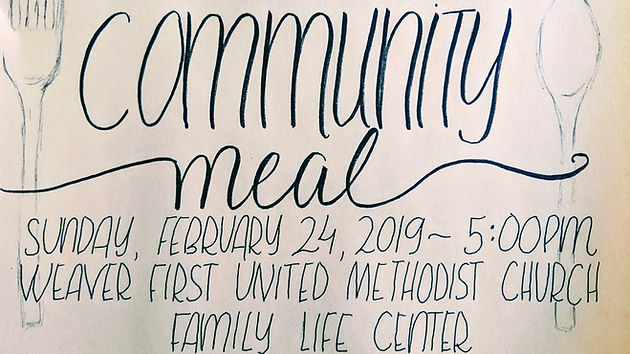 community
meal
SUNDAY, FEBRUARY 24, 2019~ 5:00PM
WEAVER FIRST UNITED METHODIST CHURCH
FAMILY LIFE CENTER